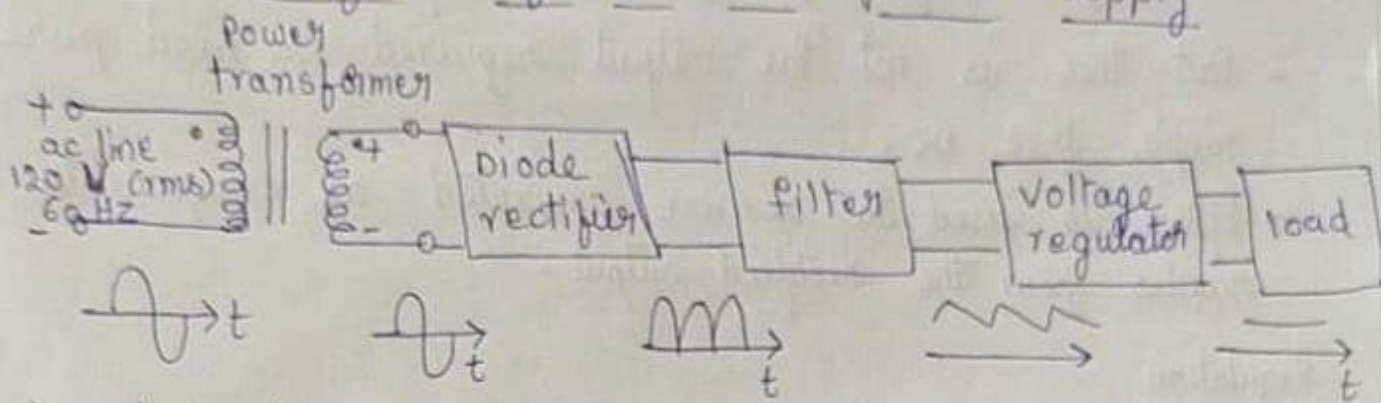 power
transformer
+
ac line
120 V (rms)
60 Hz
-
+
-
Diode
rectifier
filter
voltage
regulator
load
t
t
t
t